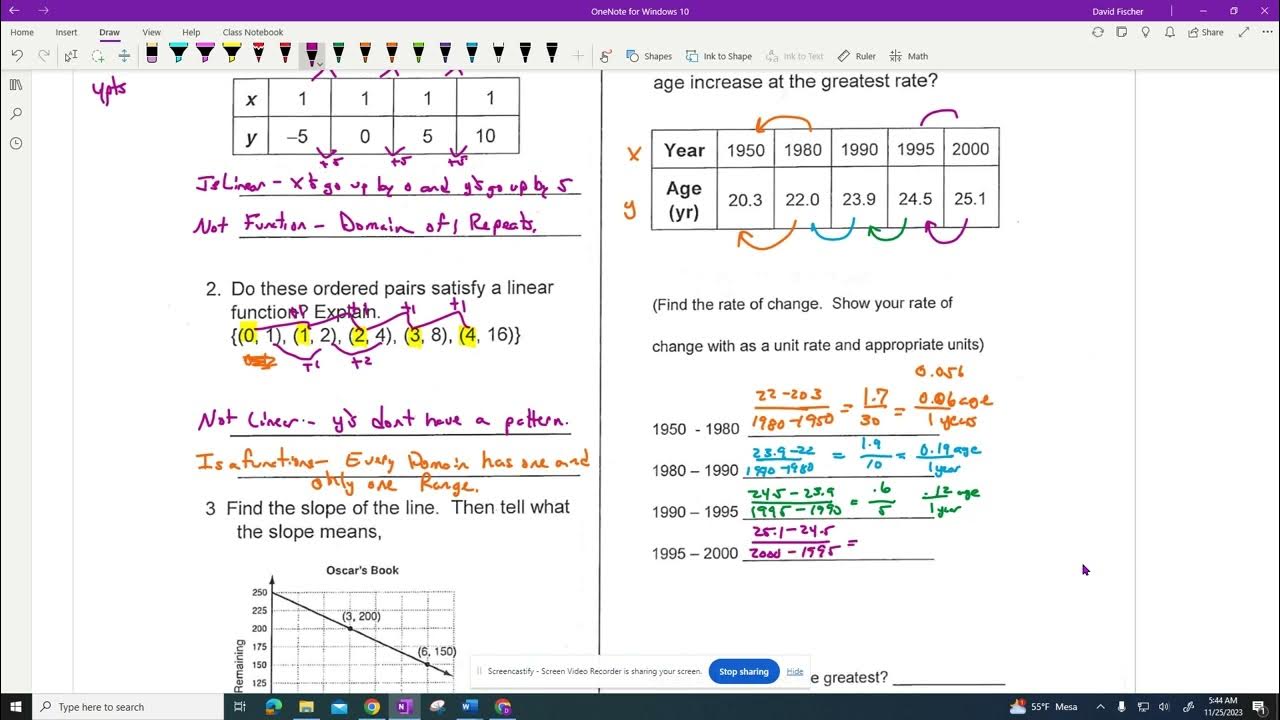 OneNote for Windows 10
David Fischer
Home Insert Draw View Help Class Notebook
Share
Shapes Ink to Shape Ink to Text Ruler Math
4pts
x 1 1 1 1
y –5 0 5 10
+5 +5 +5
Is Linear - x's go up by 0 and y's go up by 5
Not Function - Domain of 1 Repeats.
2. Do these ordered pairs satisfy a linear
function? Explain.
+1 +1 +1 +1
{(0, 1), (1, 2), (2, 4), (3, 8), (4, 16)}
+1 +2
Not Linear - y's dont have a pattern.
Is a functions - Every Domain has one and
only one Range.
3 Find the slope of the line. Then tell what
the slope means,
Oscar's Book
250
225
200
175
150
125
(3, 200)
(6, 150)
Remaining
age increase at the greatest rate?
x Year 1950 1980 1990 1995 2000
y Age (yr) 20.3 22.0 23.9 24.5 25.1
(Find the rate of change. Show your rate of
change with as a unit rate and appropriate units)
0.056
1950 - 1980 22-20.3 / 1980-1950 = 1.7 / 30 = 0.06 age / 1 years
1980 – 1990 23.9-22 / 1990-1980 = 1.9 / 10 = 0.19 age / 1 year
1990 – 1995 24.5-23.9 / 1995-1990 = .6 / 5 .12 age / 1 year
1995 – 2000 25.1-24.5 / 2000-1995 =
e greatest?
Screencastify - Screen Video Recorder is sharing your screen. Stop sharing Hide
Type here to search
55°F Mesa
5:44 AM
11/25/2023